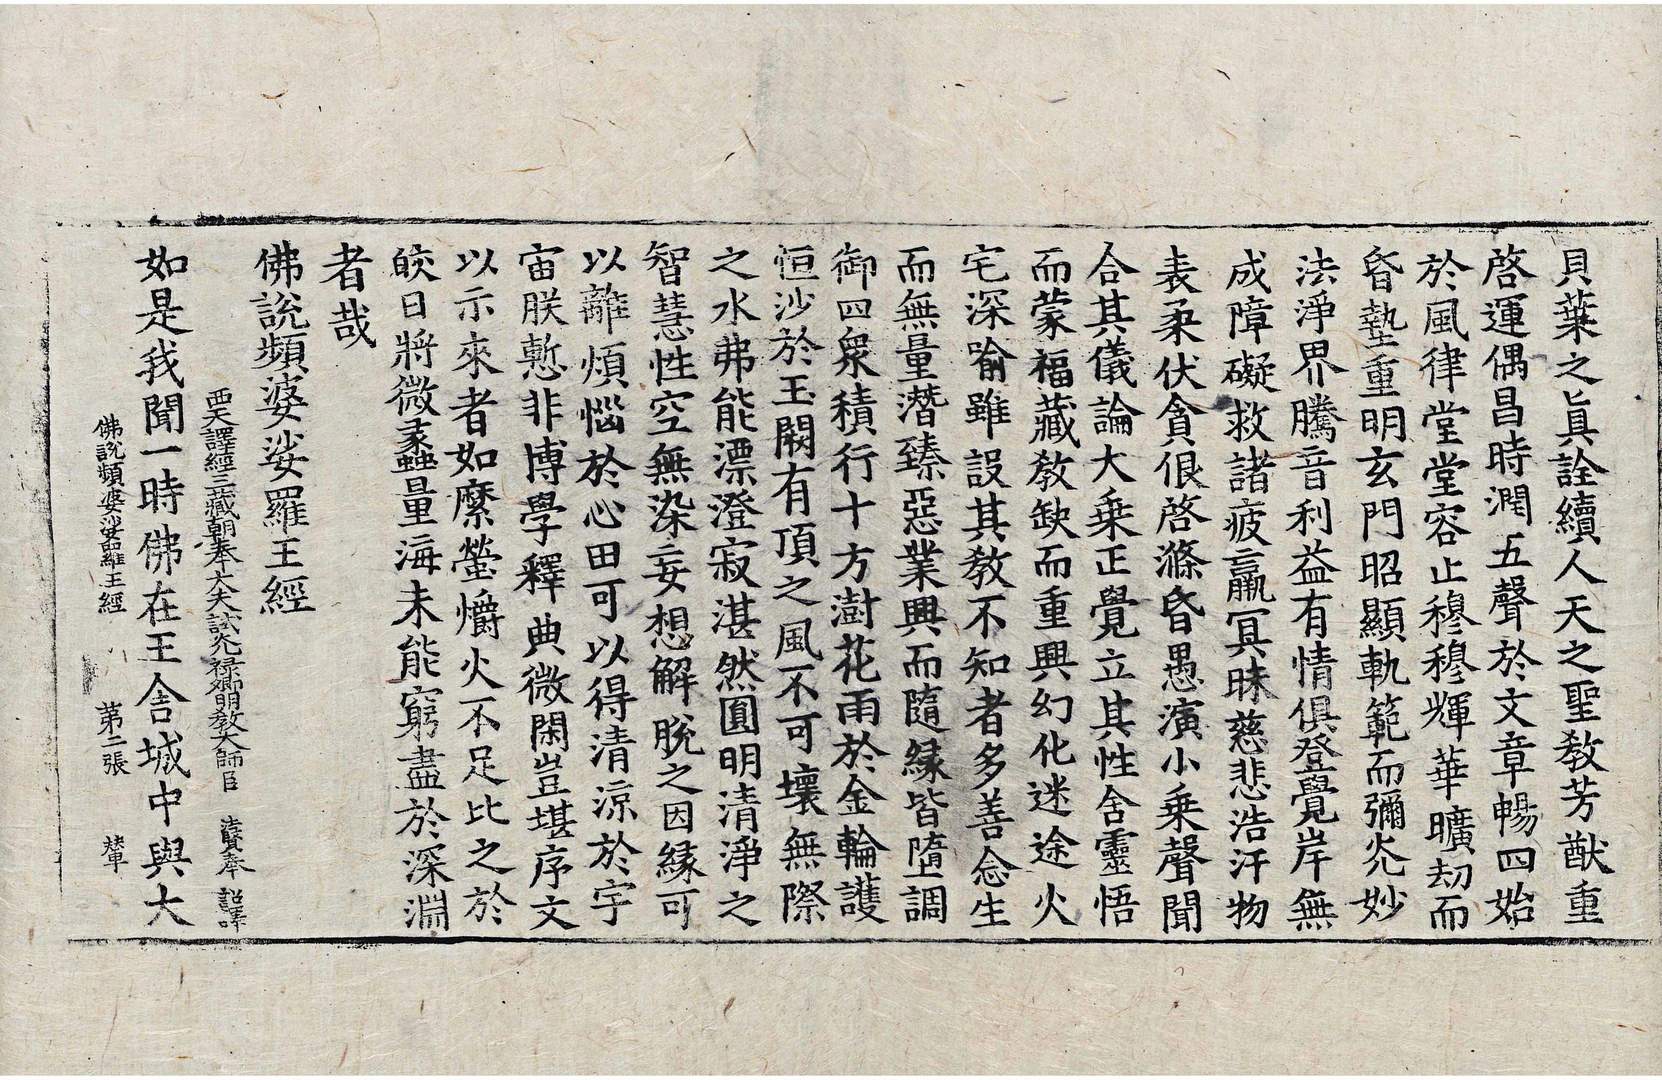 貝葉之眞詮續人天之聖教芳猷重
啓運偶昌時潤五聲於文章暢四始
於風律堂堂容止穆穆輝華曠劫而
昏墊重明玄門昭顯軌範而彌光妙
法淨界騰音利益有情俱登覺岸無
成障礙救諸疲羸冥昧慈悲浩汗物
表柔伏貪佷啓滌昏愚演小乗聲聞
合其儀論大乗正覺立其性含靈悟
而蒙福藏教缺而重興幻化迷途火
宅深喻雖設其教不知者多善念生
而無量潛臻惡業興而隨緣皆墮調
御四衆積行十方澍花雨於金輪護
恒沙於玉闕有頂之風不可壞無際
之水弗能漂澄寂湛然圎明清淨之
智慧性空無染妄想解脫之因緣可
以離煩惱於心田可以得清涼於宇
宙朕慙非博學釋典微閑豈堪序文
以示來者如縻螢爝火不足比之於
皎日將微蠡量海未能窮盡於深淵
者哉
佛說頻婆娑羅王經
西天譯經三藏朝奉大夫試光禄卿明教大師臣 法賢奉 詔譯
如是我聞一時佛在王舍城中與大
佛說頻婆娑羅王經 第二張 輦